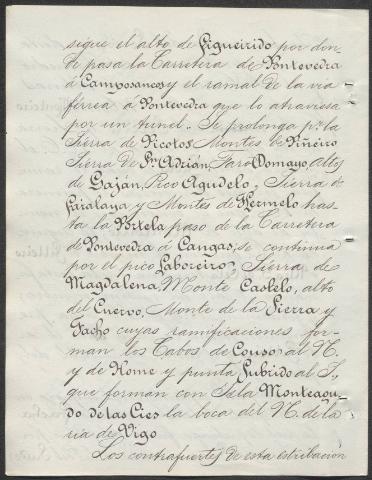 sigue el alto de Figueirido por don-
de pasa la Carretera de Pontevedra
á Camposancos y el ramal de la via
férrea á Pontevedra que lo atraviesa
por un tunel. Se prolonga pr. la
Sierra de Picotos Montes de Piñeiro
Sierra de Sn. Adrián, Faro Domayo, Altos
de Gaján, Pico Agudelo, Sierra de
Faralaya y Montes de Hermelo has-
ta la Portela paso de la Carretera
de Pontevedra á Cangas, se continua
por el pico Laboreiro, Sierra de
Magdalena, Monte Castelo, alto
del Cuervo, Monte de la Sierra y
Facho cuyas ramificaciones for-
man los Cabos de Couso al N.
y de Home y punta Subrido al S,
que forman con Isla Monteagu-
do de las Cies la boca del N. de la
ria de Vigo
Los contrafuertes de esta estribación